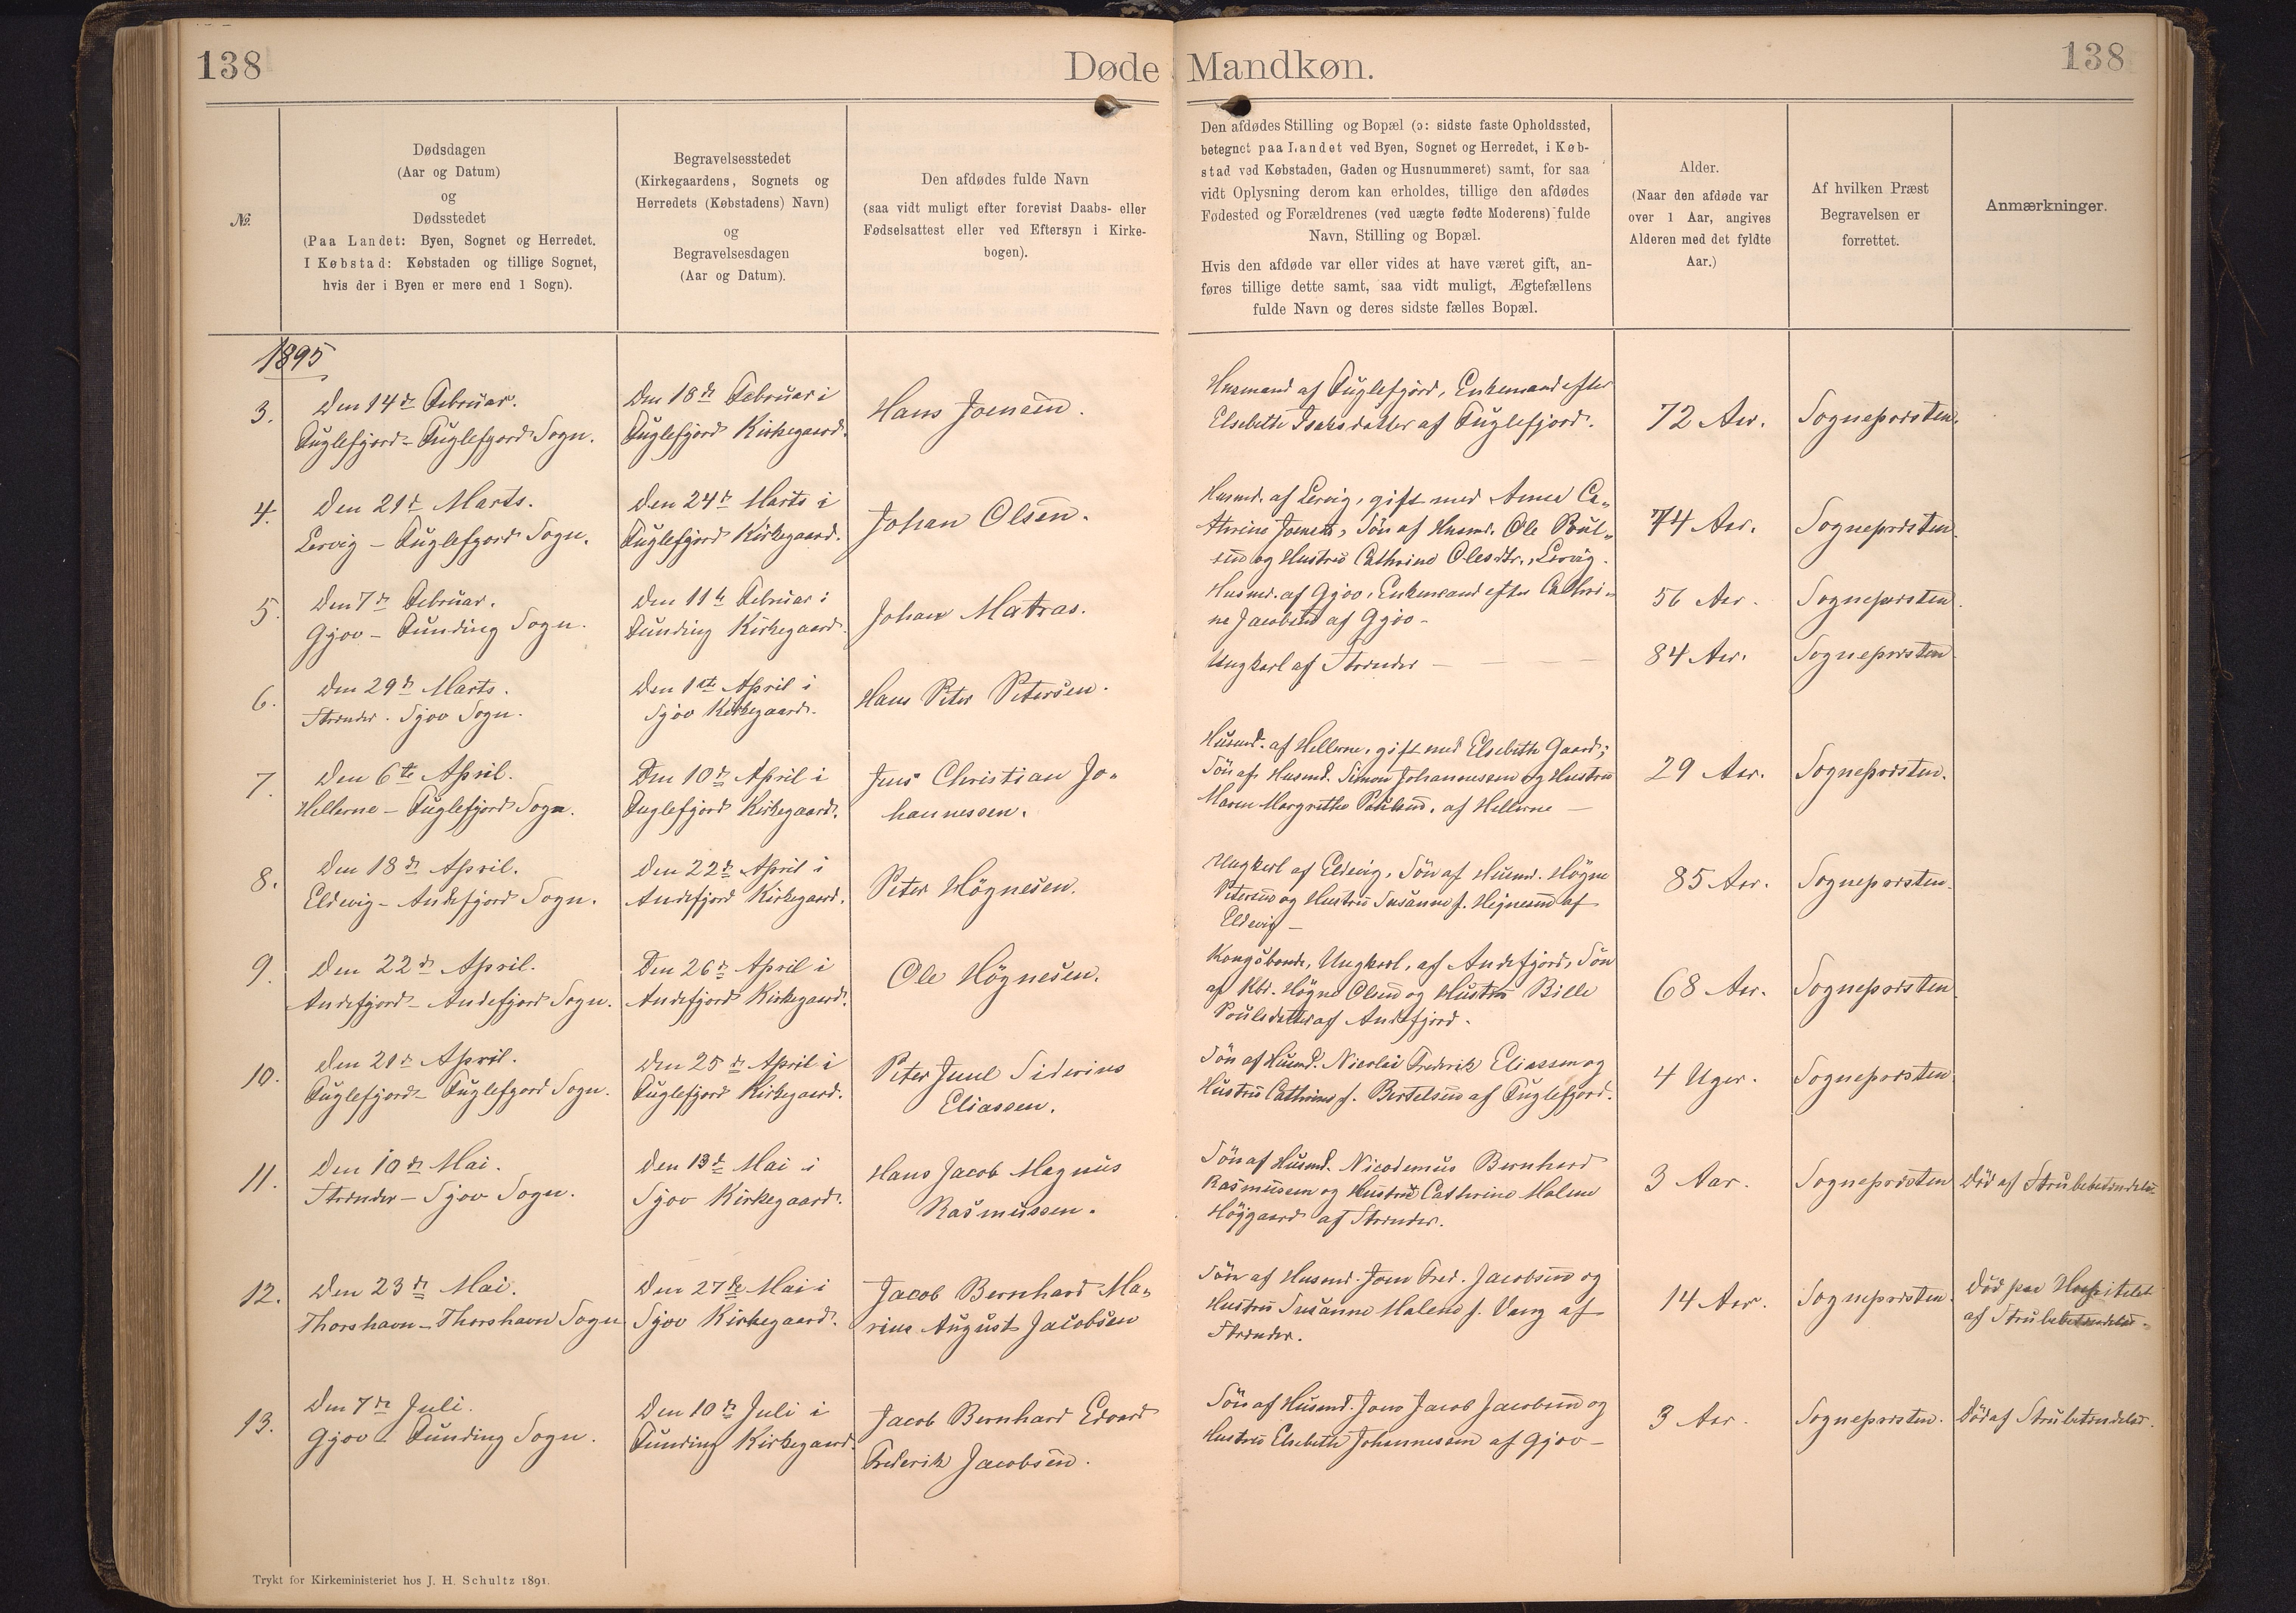 138
Døde
Mandkøn.
138
№
Dødsdagen
(Aar og Datum)
og
Dødsstedet
(Paa Landet: Byen, Sognet og Herredet.
I Købstad: Købstaden og tillige Sognet,
hvis der i Byen er mere end 1 Sogn).
Begravelsesstedet
(Kirkegaardens, Sognets og
Herredets (Købstadens) Navn)
og
Begravelsesdagen
(Aar og Datum).
Den afdødes fulde Navn
(saa vidt muligt efter forevist Daabs- eller
Fødselsattest eller ved Eftersyn i Kirke-
bogen).
Den afdødes Stilling og Bopæl (ɔ: sidste faste Opholdssted,
betegnet paa Landet ved Byen, Sognet og Herredet, i Køb-
stad ved Købstaden, Gaden og Husnummeret) samt, for saa
vidt Oplysning derom kan erholdes, tillige den afdødes
Fødested og Forældrenes (ved uægte fødte Moderens) fulde
Navn, Stilling og Bopæl.
Hvis den afdøde var eller vides at have været gift, an-
føres tillige dette samt, saa vidt muligt, Ægtefællens
fulde Navn og deres sidste fælles Bopæl.
Alder.
(Naar den afdøde var
over 1 Aar, angives
Alderen med det fyldte
Aar.)
Af hvilken Præst
Begravelsen er
forrettet.
Anmærkninger.
1895
3.
Den 14de Februar.
Fuglefjord - Fuglefjord Sogn.
Den 18de Februar i
Fuglefjord Kirkegaard.
Hans Joensen.
Husmand af Fuglefjord, Enkemand efter
Elsebeth Isaksdatter af Fuglefjord.
72 Aar.
Sognepræsten.
4.
Den 21de Marts.
Lervig - Fuglefjord Sogn.
Den 24de Marts i
Fuglefjord Kirkegaard.
Johan Olsen.
Husmd. af Lervig, gift med Anna Ca-
thrine Joensen, Søn af Husmd. Ole Poul-
sen og Hustru Cathrine Olesdtr., Lervig.
74 Aar.
Sognepræsten.
5.
Den 7de Februar.
Gjov - Funding Sogn.
Den 11te Februar i
Funding Kirkegaard.
Johan Matras.
Husmd. af Gjov, Enkemand efter Cathri-
ne Jacobsen af Gjov -
56 Aar.
Sognepræsten.
6.
Den 29de Marts.
Strænder - Sjov Sogn.
Den 1ste April i
Sjov Kirkegaard.
Hans Peter Petersen.
Ungkarl af Strænder - - - -
84 Aar.
Sognepræsten
7.
Den 6te April.
Hellerne - Fuglefjord Sogn.
Den 10de April i
Fuglefjord Kirkegaard.
Jens Christian Jo-
hannessen.
Husmd. af Hellerne, gift med Elsebeth Gaard;
Søn af Husmd. Simon Johannessen og Hustru
Maren Margrethe Poulsen, af Hellerne -
29 Aar.
Sognepræsten.
8.
Den 18de April.
Eldevig - Andefjord Sogn.
Den 22de April i
Andefjord Kirkegaard.
Peter Högnesen.
Ungkarl af Eldevig, Søn af Husmd. Högne
Petersen og Hustru Susanne f. Hejnesen af
Eldevig -
85 Aar.
Sognepræsten.
9.
Den 22de April.
Andefjord - Andefjord Sogn.
Den 26de April i
Andefjord Kirkegaard.
Ole Högnesen.
Kongsbonde, Ungkarl, af Andefjord, Søn
af Kbd. Högne Olsen og Hustru Bille
Poulsdatter af Andefjord.
68 Aar.
Sognepræsten.
10.
Den 21de April.
Fuglefjord - Fuglefjord Sogn.
Den 25de April i
Fuglefjord Kirkegaard.
Peter Juul Siderius
Eliassen.
Søn af Husmd. Nicolai Frederik Eliassen og
Hustru Cathrine f. Bertelsen af Fuglefjord.
4 Uger.
Sognepræsten.
11.
Den 10de Mai.
Strænder - Sjov Sogn.
Den 13de Mai i
Sjov Kirkegaard.
Hans Jacob Magnus
Rasmussen.
Søn af Husmd. Nicodemus Bernhard
Rasmussen og Hustru Cathrine Malene
Höjgaard af Strænder.
3 Aar.
Sognepræsten
Död af Strubebetændelse
12.
Den 23de Mai.
Thorshavn - Thorshavn Sogn
Den 27de Mai i
Sjov Kirkegaard.
Jacob Bernhard Ma-
rius August Jacobsen
Søn af Husmd. Joen Fred. Jacobsen og
Hustru Susanne Malene f. Vang af
Strænder.
14 Aar.
Sognepræsten.
Död paa Hospitalet
af Strubebetændelse.
13.
Den 7de Juli.
Gjov - Funding Sogn.
Den 10de Juli i
Funding Kirkegaard.
Jacob Bernhard Edvard
Frederik Jacobsen.
Søn af Husmd. Jens Jacob Jacobsen og
Hustru Elsebeth Johannessen af Gjov -
3 Aar.
Sognepræsten.
Död af Strubetændelse.
Trykt for Kirkeministeriet hos J. H. Schultz 1891.